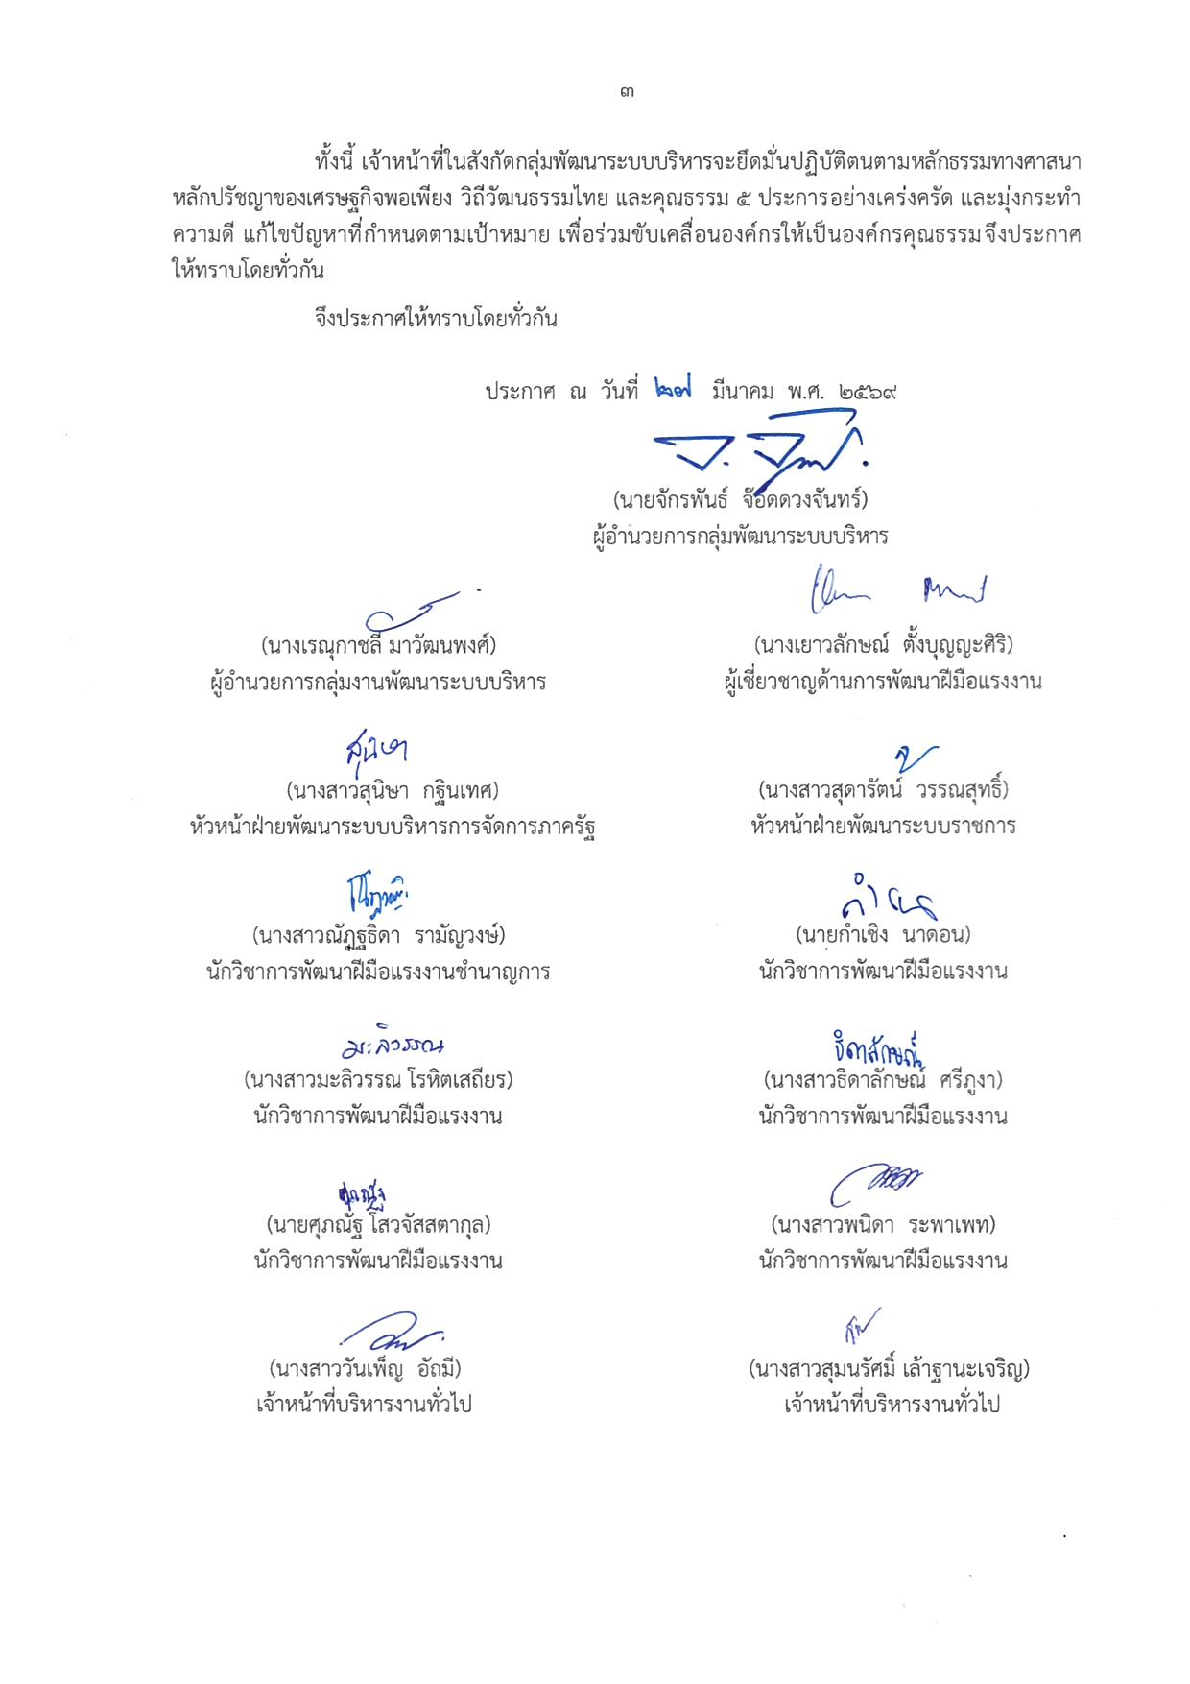 ๓
ทั้งนี้ เจ้าหน้าที่ในสังกัดกลุ่มพัฒนาระบบบริหารจะยึดมั่นปฏิบัติตนตามหลักธรรมทางศาสนา
หลักปรัชญาของเศรษฐกิจพอเพียง วิถีวัฒนธรรมไทย และคุณธรรม ๕ ประการอย่างเคร่งครัด และมุ่งกระทำ
ความดี แก้ไขปัญหาที่กำหนดตามเป้าหมาย เพื่อร่วมขับเคลื่อนองค์กรให้เป็นองค์กรคุณธรรม จึงประกาศ
ให้ทราบโดยทั่วกัน
จึงประกาศให้ทราบโดยทั่วกัน
ประกาศ ณ วันที่ ๒๗ มีนาคม พ.ศ. ๒๕๖๙
(นายจักรพันธ์ จ๊อดดวงจันทร์)
ผู้อำนวยการกลุ่มพัฒนาระบบบริหาร
(นางเรณุกาชลี มาวัฒนพงศ์) (นางเยาวลักษณ์ ตั้งบุญญะศิริ)
ผู้อำนวยการกลุ่มงานพัฒนาระบบบริหาร ผู้เชี่ยวชาญด้านการพัฒนาฝีมือแรงงาน
สุนิษา
(นางสาวสุนิษา กฐินเทศ) (นางสาวสุดารัตน์ วรรณสุทธิ์)
หัวหน้าฝ่ายพัฒนาระบบบริหารการจัดการภาครัฐ หัวหน้าฝ่ายพัฒนาระบบราชการ
(นางสาวณัฏฐธิดา รามัญวงษ์) (นายกำเชิง นาดอน)
นักวิชาการพัฒนาฝีมือแรงงานชำนาญการ นักวิชาการพัฒนาฝีมือแรงงาน
มะลิวรรณ ธิดาลักษณ์
(นางสาวมะลิวรรณ โรหิตเสถียร) (นางสาวธิดาลักษณ์ ศรีภูงา)
นักวิชาการพัฒนาฝีมือแรงงาน นักวิชาการพัฒนาฝีมือแรงงาน
ศุภณัฐ
(นายศุภณัฐ โสวจัสสตากุล) (นางสาวพนิดา ระพาเพท)
นักวิชาการพัฒนาฝีมือแรงงาน นักวิชาการพัฒนาฝีมือแรงงาน
(นางสาววันเพ็ญ อัถมี) (นางสาวสุมนรัศมิ์ เล้าฐานะเจริญ)
เจ้าหน้าที่บริหารงานทั่วไป เจ้าหน้าที่บริหารงานทั่วไป